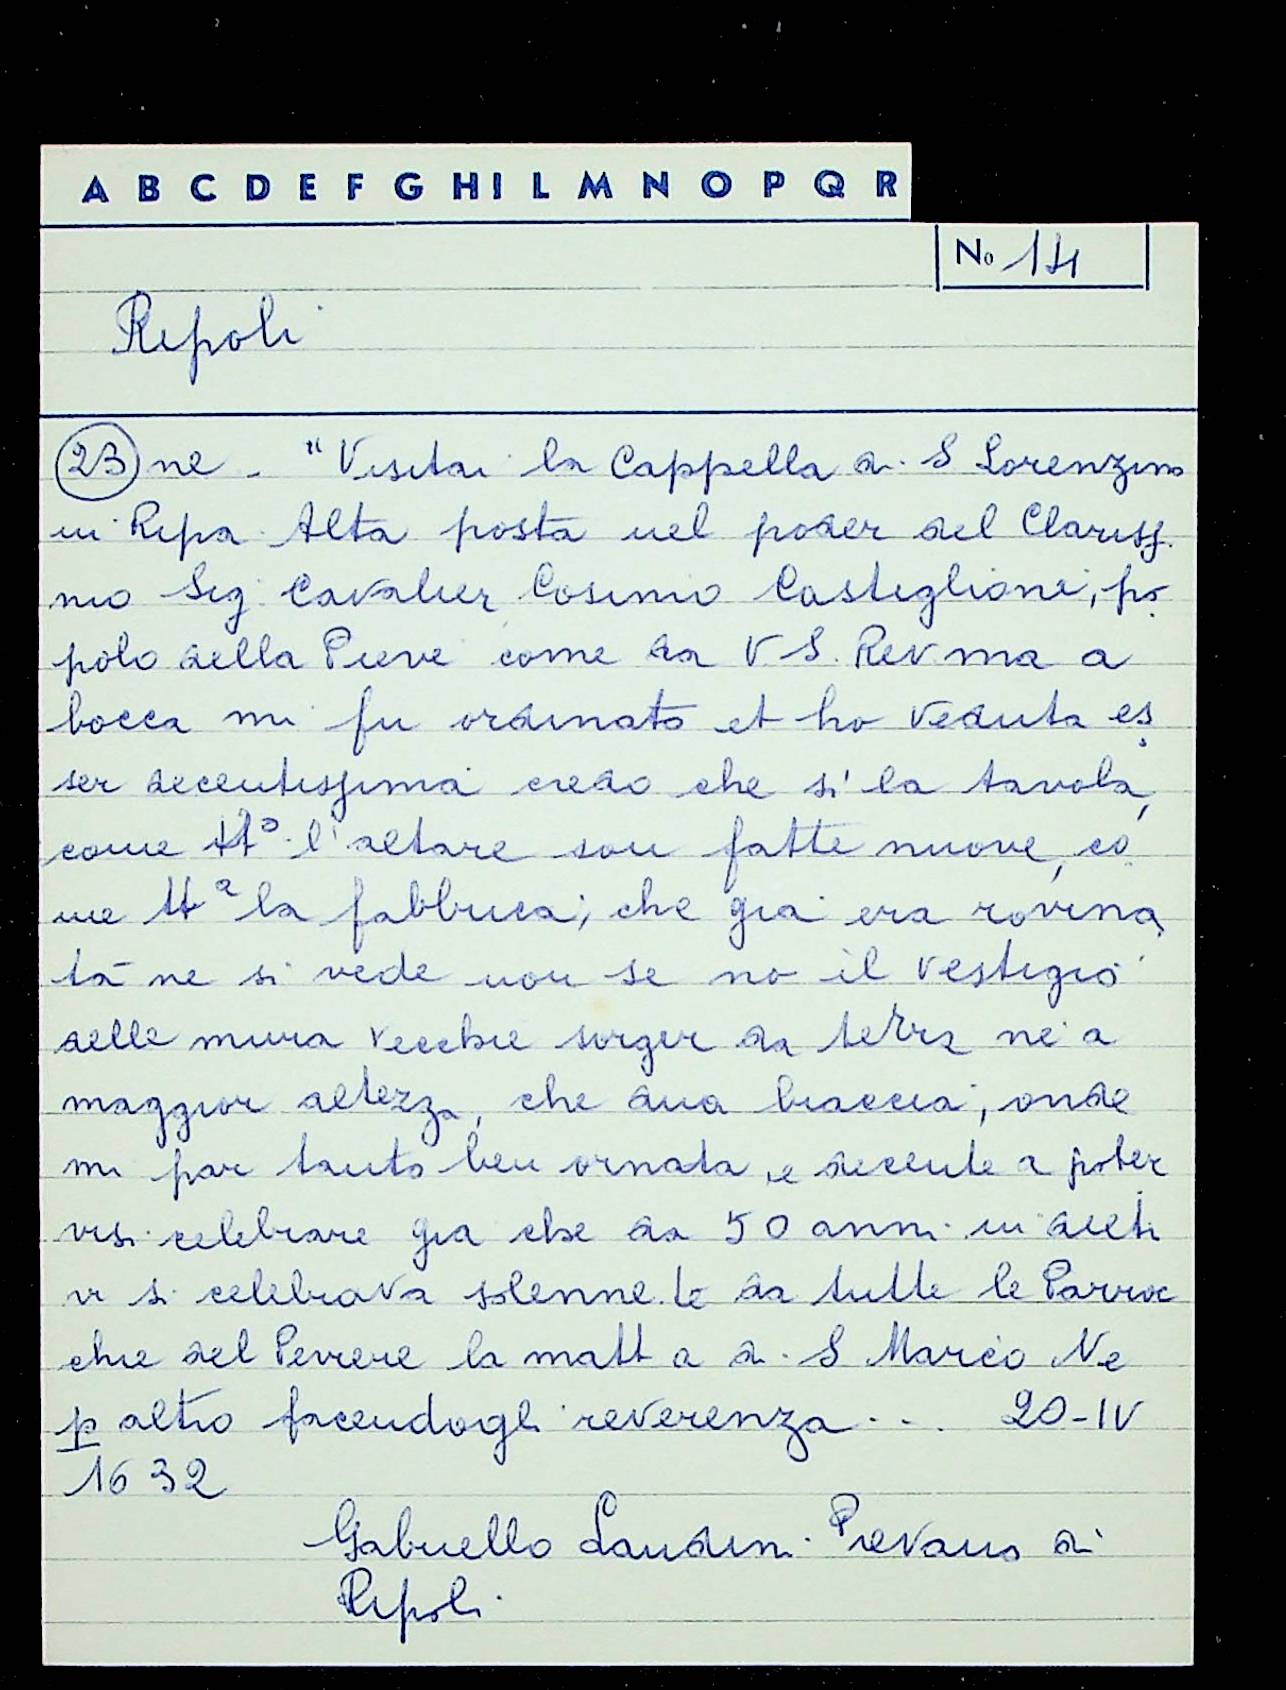 A B C D E F G H I L M N O P Q R
No 14
Ripoli
23 ne - "Visitai la Cappella di S Lorenzino
in Ripa Alta posta nel poder del Clariss.
mo Sig Cavalier Cosimo Castiglioni, po
polo della Pieve come da V S. Rev ma a
bocca mi fu ordinato et ho veduta es
ser decentissima credo che si la tavola,
come l'altare son fatte nuove, co
me la fabbrica, che gia era rovina
ta ne si vede non se no il vestigio
delle mura vecchie sorger da terra ne a
maggior altezza, che dua braccia, onde
mi par tanto ben ornata e decente a poter
visi celebrare gia che da 50 anni in dieti
vi si celebrava solenne.te da tutte le Parroc
chie del Piviere la matt a di S Marco Ne
p altro facendogli reverenza... 20-IV
1632
Gabriello Landini Pievano di
Ripoli